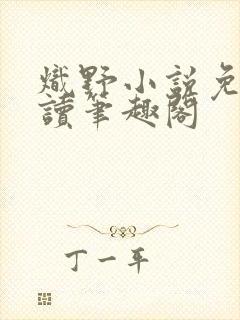 熾野小說免
讀筆趣閣
丁一平